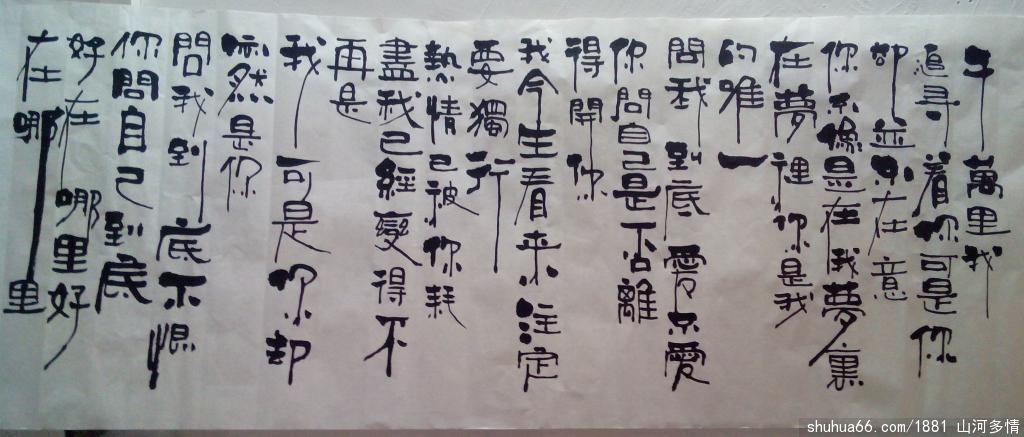 千萬里我
追寻着你可是你
却並不在意
你不像是在我夢裏
在夢裡你是我
的唯一
問我到底愛不愛
你問自己是否離
得開你
我今生看来注定
要獨行
熱情已被你耗
盡我已經變得不
再是
我可是你却
依然是你
問我到底不恨
你問自己到底
好在哪里好
在哪里
shuhua66.com/1881 山河多情